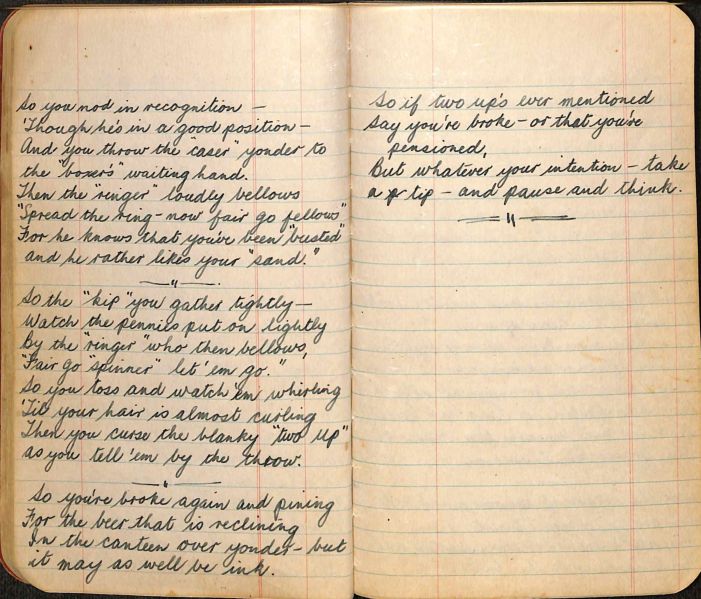 So you nod in recognition -
'Though he's in a good position -
And you throw the "caser" yonder to
the "boxer's" waiting hand.
Then the "ringer" loudly bellows
"Spread the ring - now fair go fellows"
For he knows that you've been "busted"
and he rather likes your "sand."
So the "kip" you gather tightly -
Watch the pennies put on lightly
By the "ringer" who then bellows,
"Fair go "spinner" let 'em go."
So you toss and watch 'em whirling
'Til your hair is almost curling
Then you curse the blanky "two up"
as you tell 'em by the throw.
So you're broke again and pining
For the beer that is reclining
In the canteen over yonder - but
it may as well be ink.
So if two up's ever mentioned
Say you're broke - or that you're
pensioned,
But whatever your intention - take
a tip - and pause and think.